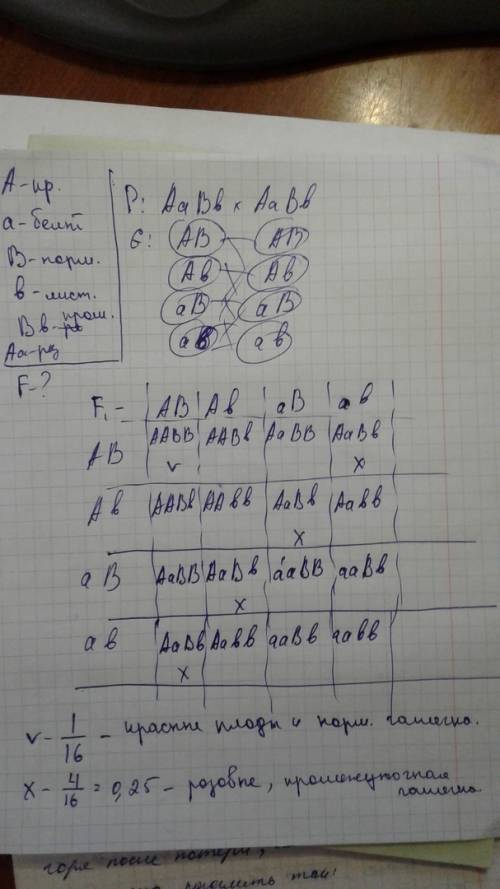 А - кр.
а - белый
В - норм.
в - лист.
Вв - пром.
Аа - роз
F - ?
P: АаВв × АаВв
G: АВ АВ
Ав Ав
аВ аВ
ав ав
F₁ - АВ Ав аВ ав
АВ ААВВ ААВв АаВВ АаВв
v x
Ав ААВв ААвв АаВв Аавв
x
аВ АаВВ АаВв ааВВ ааВв
x
ав АаВв Аавв ааВв аавв
x
v - 1/16 - красные плоды и норм. чашечка.
x - 4/16 = 0,25 - розовые, промежуточная
чашечка.
горя после потери,